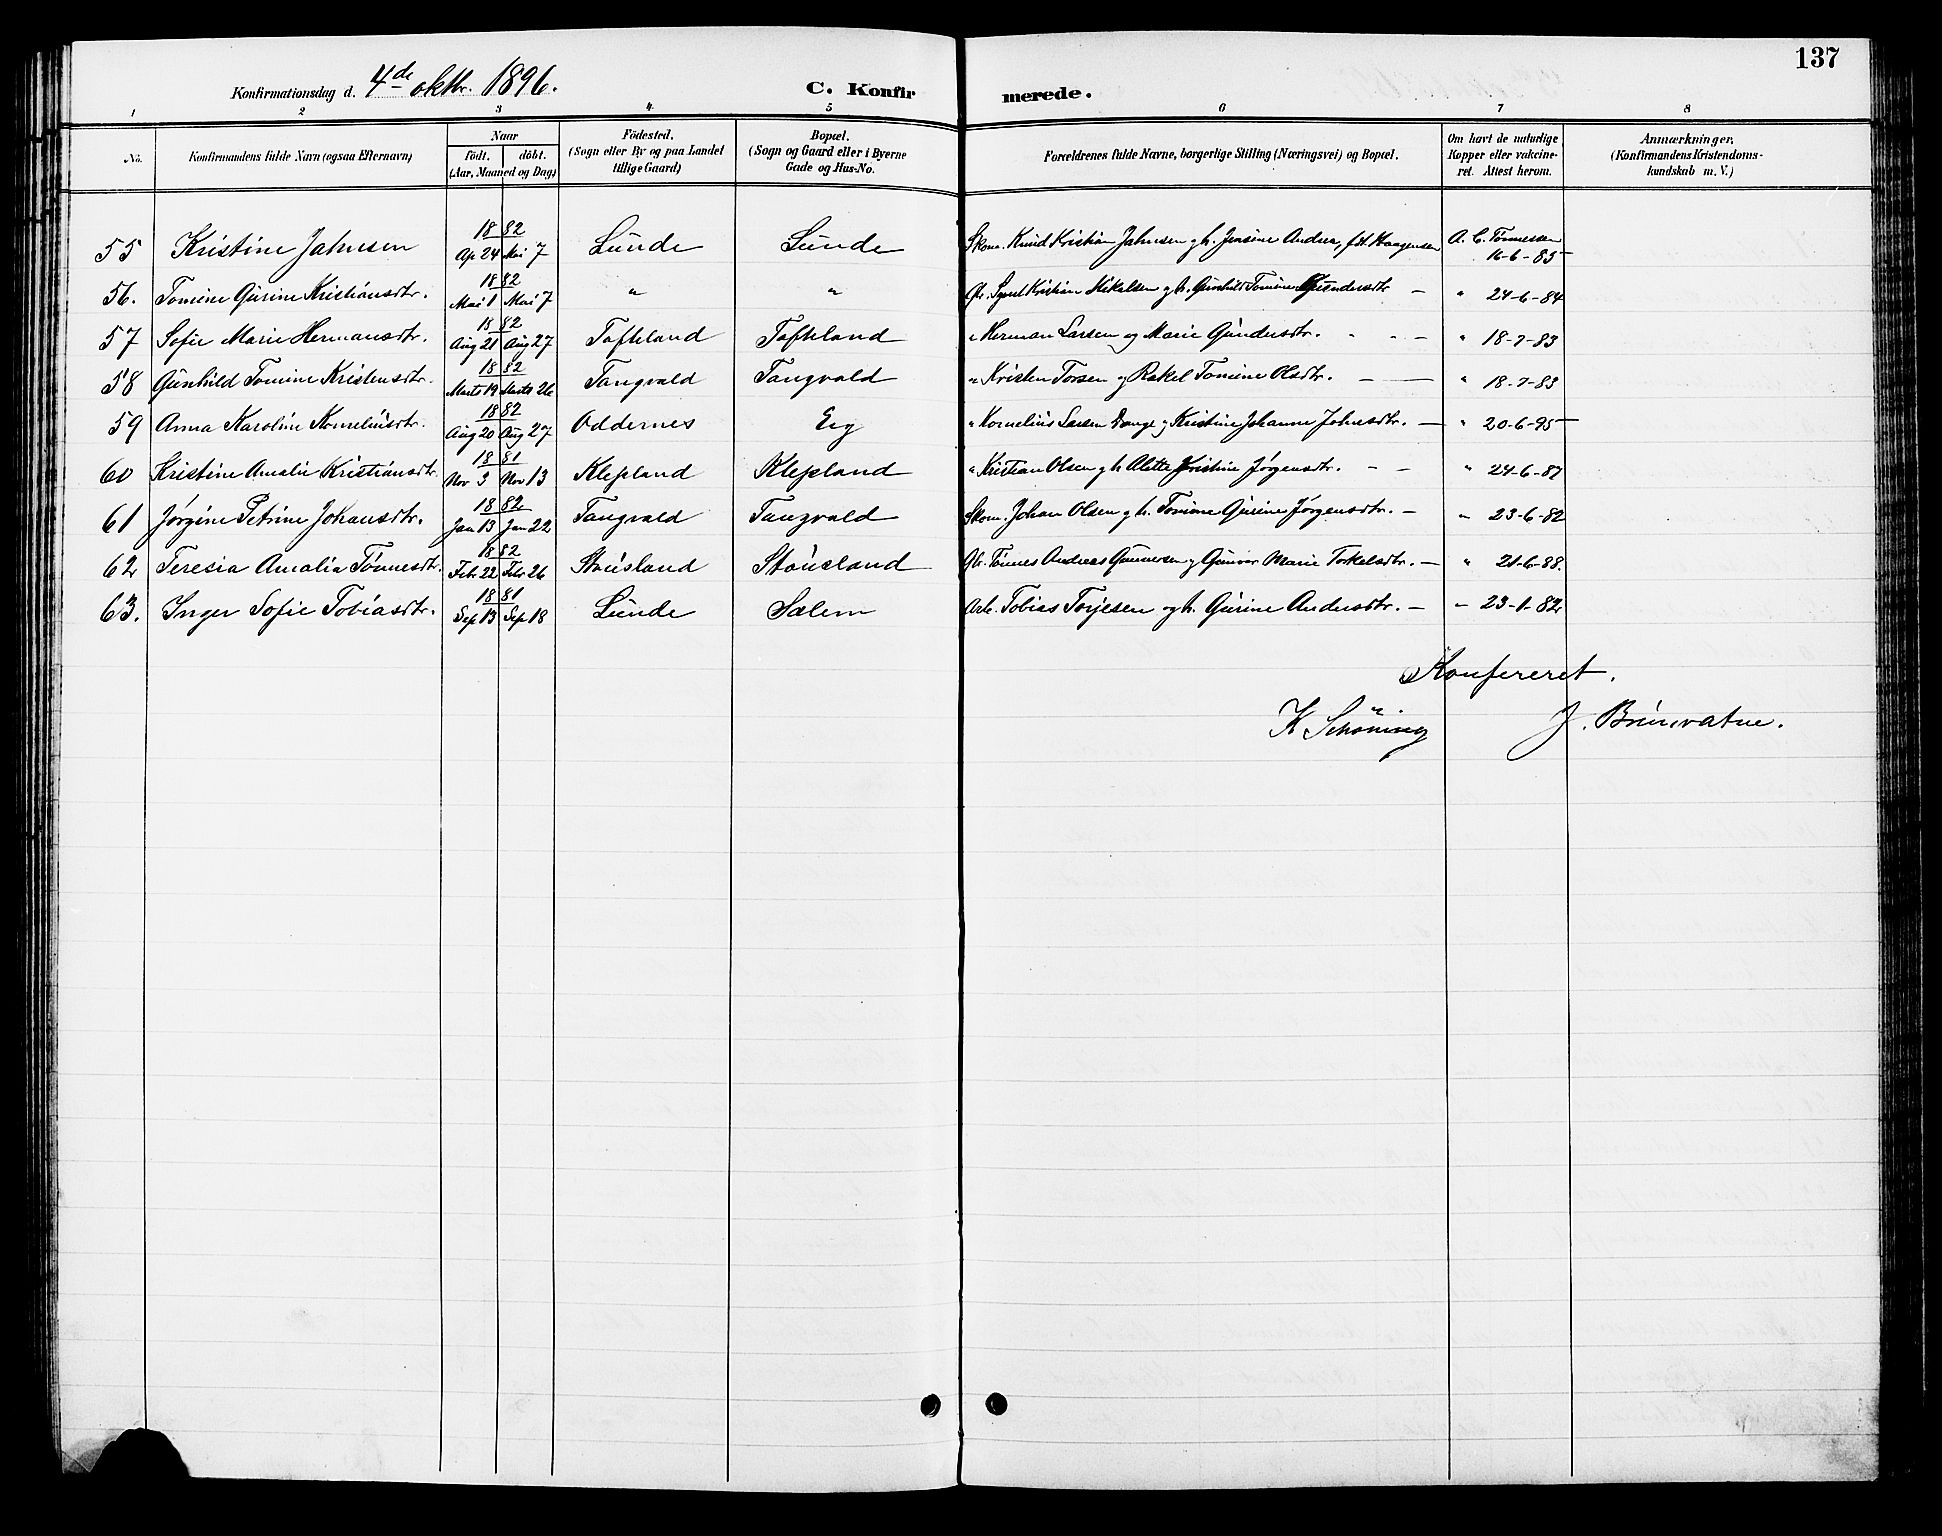 137
Konfirmationsdag d. 4de oktbr. 1896. C. Konfirmerede.
1 2 3 4 5 6 7 8
No. Konfirmandens fulde Navn (ogsaa Efternavn) Naar födt. döbt. (Aar, Maaned og Dag) Födested. (Sogn eller By og paa Landet tillige Gaard) Bopæl. (Sogn og Gaard eller i Byerne Gade og Hus-No. Forældrenes fulde Navne, borgerlige Stilling (Næringsvei) og Bopæl. Om havt de naturlige Kopper eller vakcineret. Attest herom. Anmærkninger. (Konfirmandens Kristendomskundskab m. V.)
55 Kristine Jahnsen 1882 Ap 24 Mai 7 Lunde Lunde Skom. Knud Kristian Jahnsen og h. Jensine Andrea, fdt. Haagensen A. C. Tønnessen 16-6-85
56. Tomine Gurine Kristiansdtr. 1882 Mai 1 Mai 7 " " Kristian Mikalsen og h. Gunhild Tomine Gundersdtr — " 24-6-84
57 Sofie Marie Hermansdtr. 1882 Aug 21 Aug 27 Tofteland Tofteland " Herman Larsen og Marie Gundersdtr. " - — " 18-7-83
58 Gunhild Tomine Kristensdtr. 1882 Marts 19 Marts 26 Tangvald Tangvald " Kristen Torsen og Rakel Tomine Olsdtr. — — " 18-7-83
59 Anna Karoline Korneliusdtr. 1882 Aug 20 Aug 27 Oddernes Eg " Kornelius Larsen Dange og Kristine Johanne Johnsdtr. — " 20-6-95
60 Kristine Amalie Kristiansdtr. 1881 Nov 3 Nov 13 Klepland Klepland " Kristian Olsen og h. Alette Kristine Jørgensdtr. — — " 24-6-87
61 Jørgine Petrine Johansdtr. 1882 Jan 13 Jan 22 Tangvald Tangvald Skom. Johan Olsen og h. Tomine Gurine Jørgensdtr. — " 23-6-82
62 Teresia Amalia Tønnesdtr. 1882 Febr. 22 Febr 26 Stousland Stousland Gbr. Tønnes Andreas Gunnersen og Gunvor Marie Torkelsdtr. — " 21-6-88.
63. Inger Sofie Tobiasdtr. 1881 Sep 13 Sep 18 Lunde Salem Arb. Tobias Torjesen og h. Gurine Andersdtr. — " 23-1-82
Konfereret.
K Schöning J. Brunvatne.